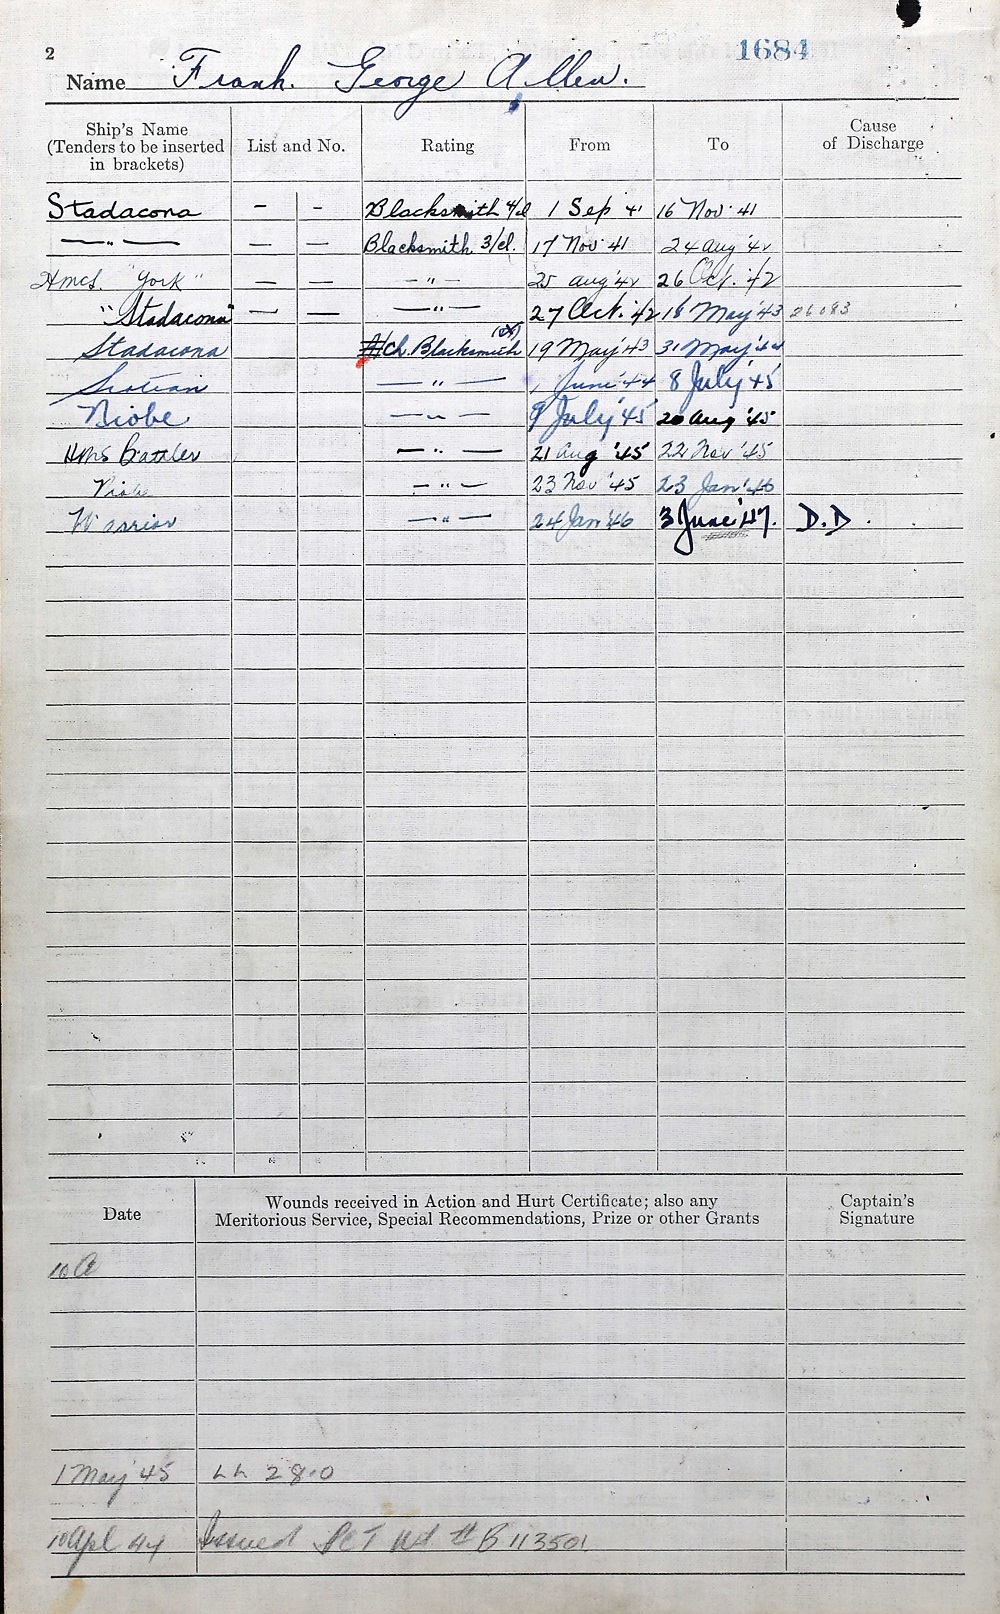 2
1684
Name Frank. George Allen.
Ship's Name
(Tenders to be inserted
in brackets)
List and No.
Rating
From
To
Cause
of Discharge
Stadacona - - Blacksmith 4/cl 1 Sep 41 16 Nov 41
—"— — — Blacksmith 3/cl. 17 Nov 41 24 Aug '42
HMCS. "York" — — -"- 25 Aug '42 26 Oct. '42
"Stadacona" — — —"— 27 Oct. '42 18 May '43 26083
Stadacona A/Ch. Blacksmith 19 May '43 31 May '44
Scotian —"— 1 June '44 8 July '45
Niobe —"— 9 July '45 20 Aug '45
HMS Battler —"— 21 Aug '45 22 Nov '45
Niobe -"- 23 Nov '45 23 Jan '46
Warrior —"— 24 Jan '46 3 June '47. D.D.
Date
Wounds received in Action and Hurt Certificate; also any
Meritorious Service, Special Recommendations, Prize or other Grants
Captain's
Signature
10 A
1 May '45 28.0
10 Apl 44 Issued # B 113501